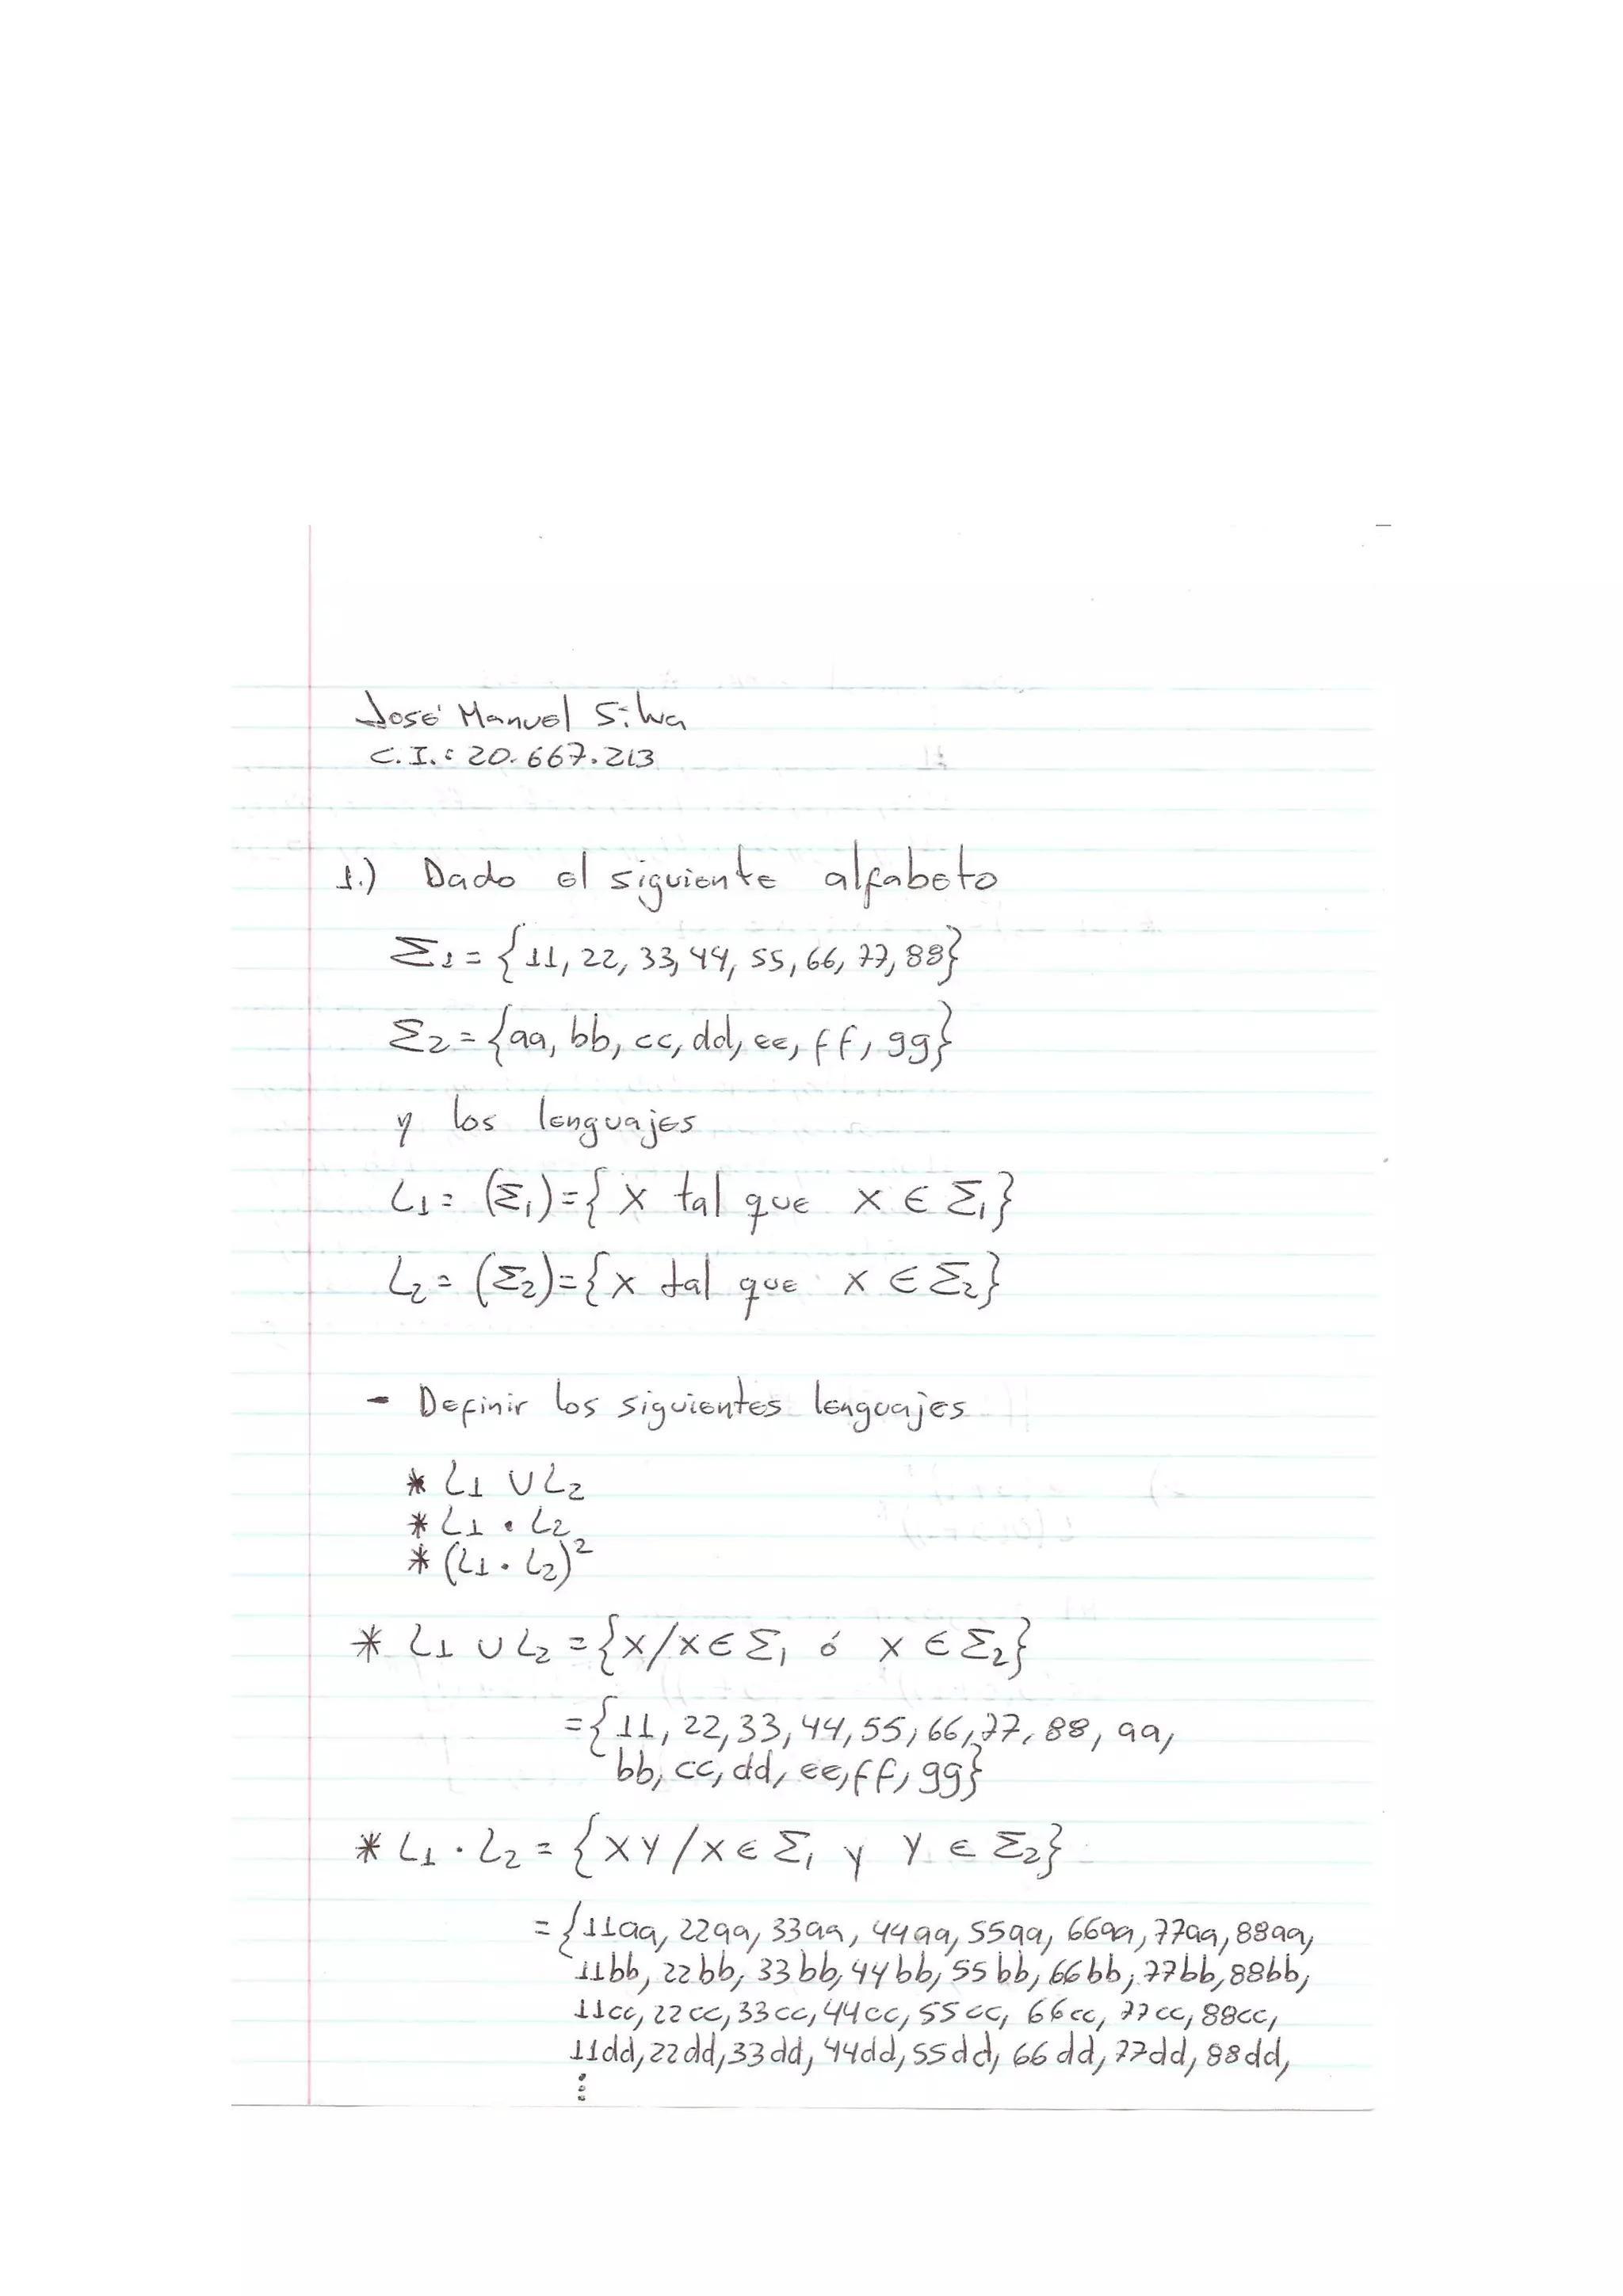 José Manuel Silva
C.I.: 20.667.213
1.) Dado el siguiente alfabeto
Σ1 = {11, 22, 33, 44, 55, 66, 77, 88}
Σ2 = {aa, bb, cc, dd, ee, ff, gg}
y los lenguajes
L1 = (Σ1) = { X tal que X ∈ Σ1}
L2 = (Σ2) = { X tal que X ∈ Σ2}
- Definir los siguientes lenguajes
* L1 ∪ L2
* L1 • L2
* (L1 • L2)²
* L1 ∪ L2 = {X/X ∈ Σ1 ó X ∈ Σ2}
= {11, 22, 33, 44, 55, 66, 77, 88, aa,
bb, cc, dd, ee, ff, gg}
* L1 • L2 = {XY / X ∈ Σ1 y Y ∈ Σ2}
= {11aa, 22aa, 33aa, 44aa, 55aa, 66aa, 77aa, 88aa,
11bb, 22bb, 33bb, 44bb, 55bb, 66bb, 77bb, 88bb,
11cc, 22cc, 33cc, 44cc, 55cc, 66cc, 77cc, 88cc,
11dd, 22dd, 33dd, 44dd, 55dd, 66dd, 77dd, 88dd,
⋮